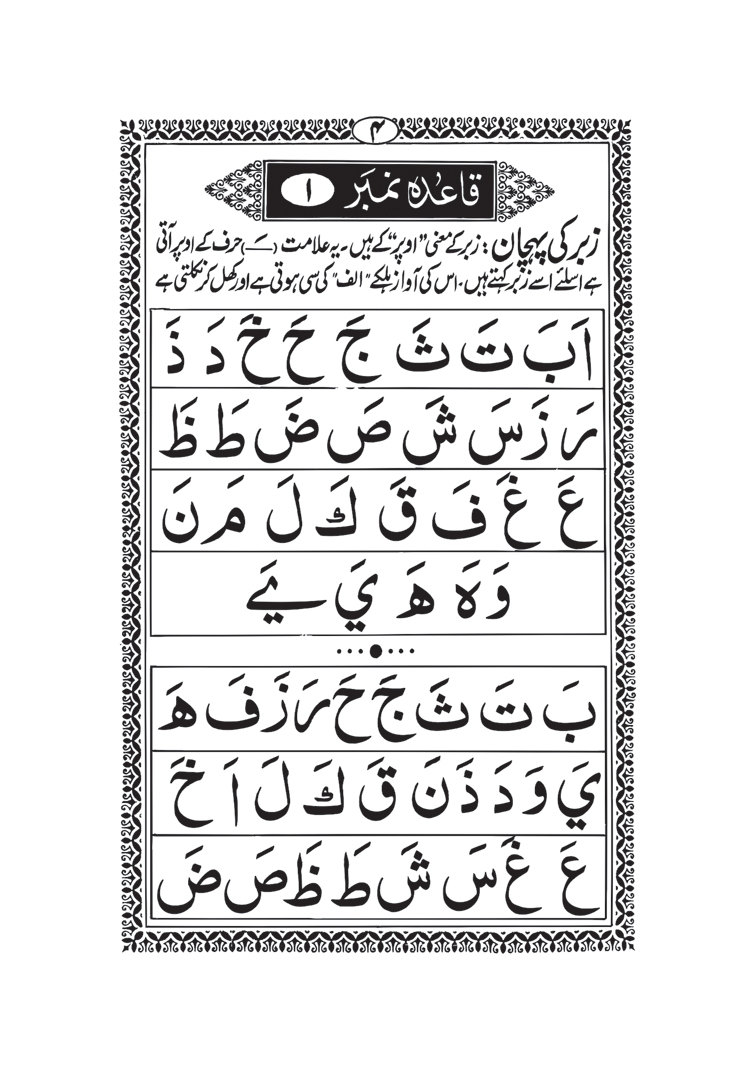 ۴
قاعدہ نمبر ۱
زبر کی پہچان : زبر کے معنی "اوپر" کے ہیں۔ یہ علامت (ـَـ) حرف کے اوپر آتی
ہے اسلئے اسے زبر کہتے ہیں۔ اس کی آواز ہلکے "الف" کی سی ہوتی ہے اور کھل کر نکلتی ہے
اَ بَ تَ ثَ جَ حَ خَ دَ ذَ
رَ زَ سَ شَ صَ ضَ طَ ظَ
عَ غَ فَ قَ كَ لَ مَ نَ
وَ ةَ ھَ يَ يَے
بَ تَ ثَ جَ حَ رَ زَ فَ ھَ
يَ وَ دَ ذَ نَ قَ كَ لَ اَ خَ
عَ غَ سَ شَ طَ ظَ صَ ضَ